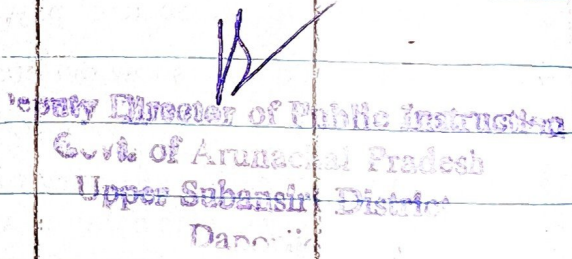 Deputy Director of Public Instruction
Govt. of Arunachal Pradesh
Upper Subansiri District